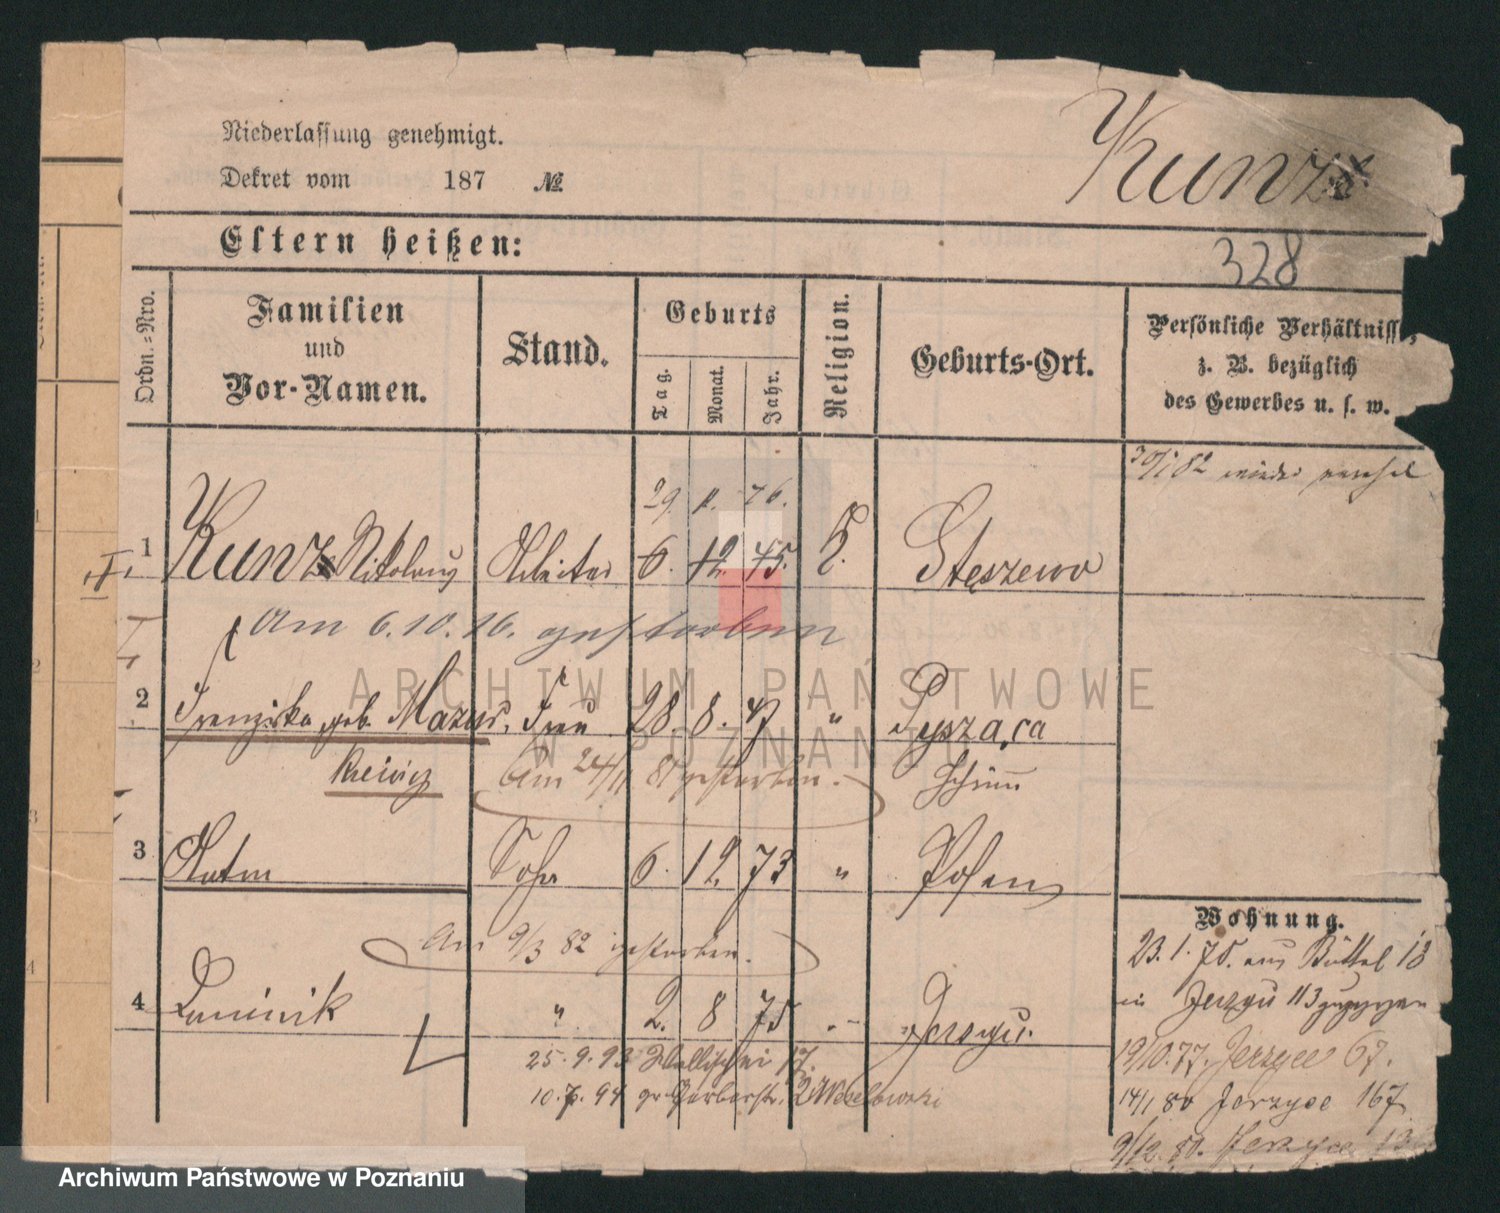 Niederlassung genehmigt.
Dekret vom 187 №
Kunz
328
Eltern heißen:
Ordn.-Nro.
Familien
und
Vor-Namen.
Stand.
Geburts
Tag.
Monat.
Jahr.
Religion.
Geburts-Ort.
Persönliche Verhältnisse,
z. B. bezüglich
des Gewerbes u. s. w.
30/1 82 wieder
29. 76.
1 Kunz Nikolaus Arbeiter 6. 12. 45. K. Stęszewo
I.
Am 6.10.16. gestorben
2 Franziska geb. Mazur Frau 28. 8. 47 " Pysząca
kiewicz Am 24/11 81 gestorben. Schrimm
3 Anton Sohn 6. 12. 73 " Posen
Wohnung.
Am 9/3 82 gestorben.
23.1.75. aus Büttel 18
4 Dominik " 2. 8 75 Jerzyce.
in Jerzyce 113 zugezogen
25.9.93 17.
19/10.77. Jerzyce 67.
10.7.94 gr. Gerberstr. 2
14/1 80 Jerzyce 167
9/12.80. Jerzyce
ARCHIWUM PAŃSTWOWE
W POZNANIU
Archiwum Państwowe w Poznaniu